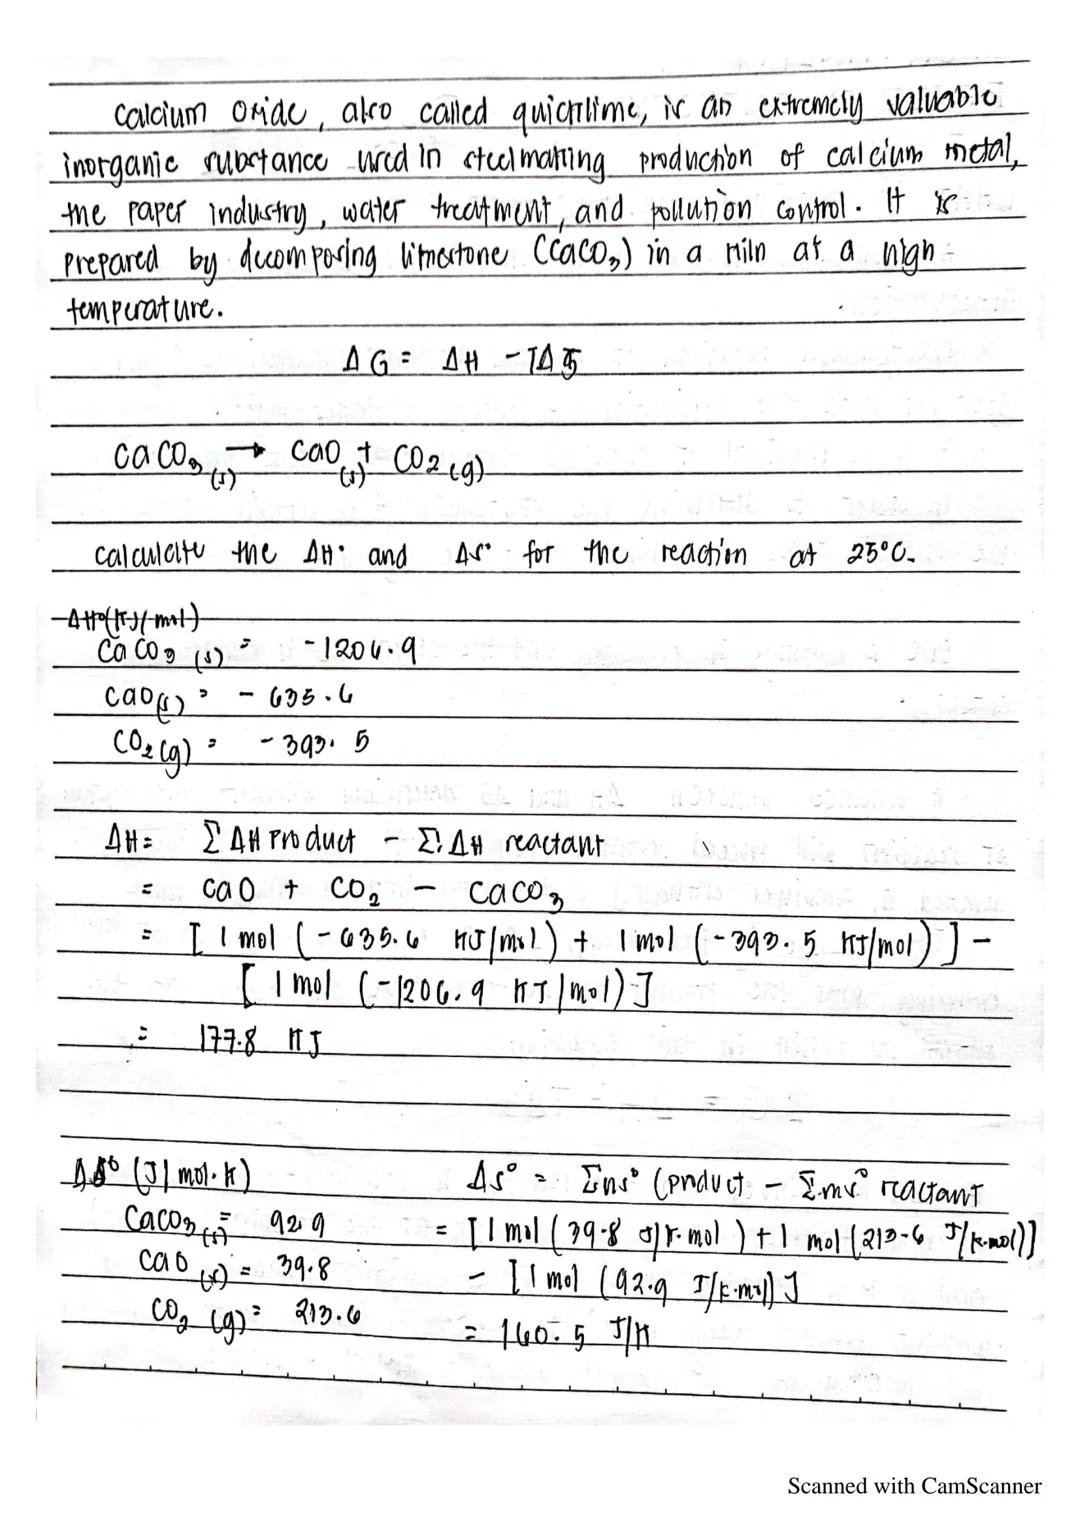 Calcium Oxide, also called quicklime, is an extremely valuable
inorganic substance used in steelmaking production of calcium metal,
the paper industry, water treatment, and pollution control. It is
prepared by decomposing limestone (CaCO₃) in a kiln at a high
temperature.
ΔG = ΔH - TΔS
CaCO₃ (s) → CaO (s) + CO₂ (g)
Calculate the ΔH° and ΔS° for the reaction at 25°C.
ΔH°(KJ/mol)
CaCO₃ (s) = -1206.9
CaO(s) = -635.6
CO₂ (g) = -393.5
ΔH = Σ ΔH Product - Σ ΔH reactant
= CaO + CO₂ - CaCO₃
= [1 mol (-635.6 KJ/mol) + 1 mol (-393.5 KJ/mol)] -
[1 mol (-1206.9 KJ/mol)]
= 177.8 KJ
ΔS° (J/mol·K)
CaCO₃ (s) = 92.9
CaO (s) = 39.8
CO₂ (g) = 213.6
ΔS° = Σns° (product - Σms° reactant
= [1 mol (39.8 J/K·mol) + 1 mol (213.6 J/K·mol)]
- [1 mol (92.9 J/K·mol)]
= 160.5 J/K
Scanned with CamScanner